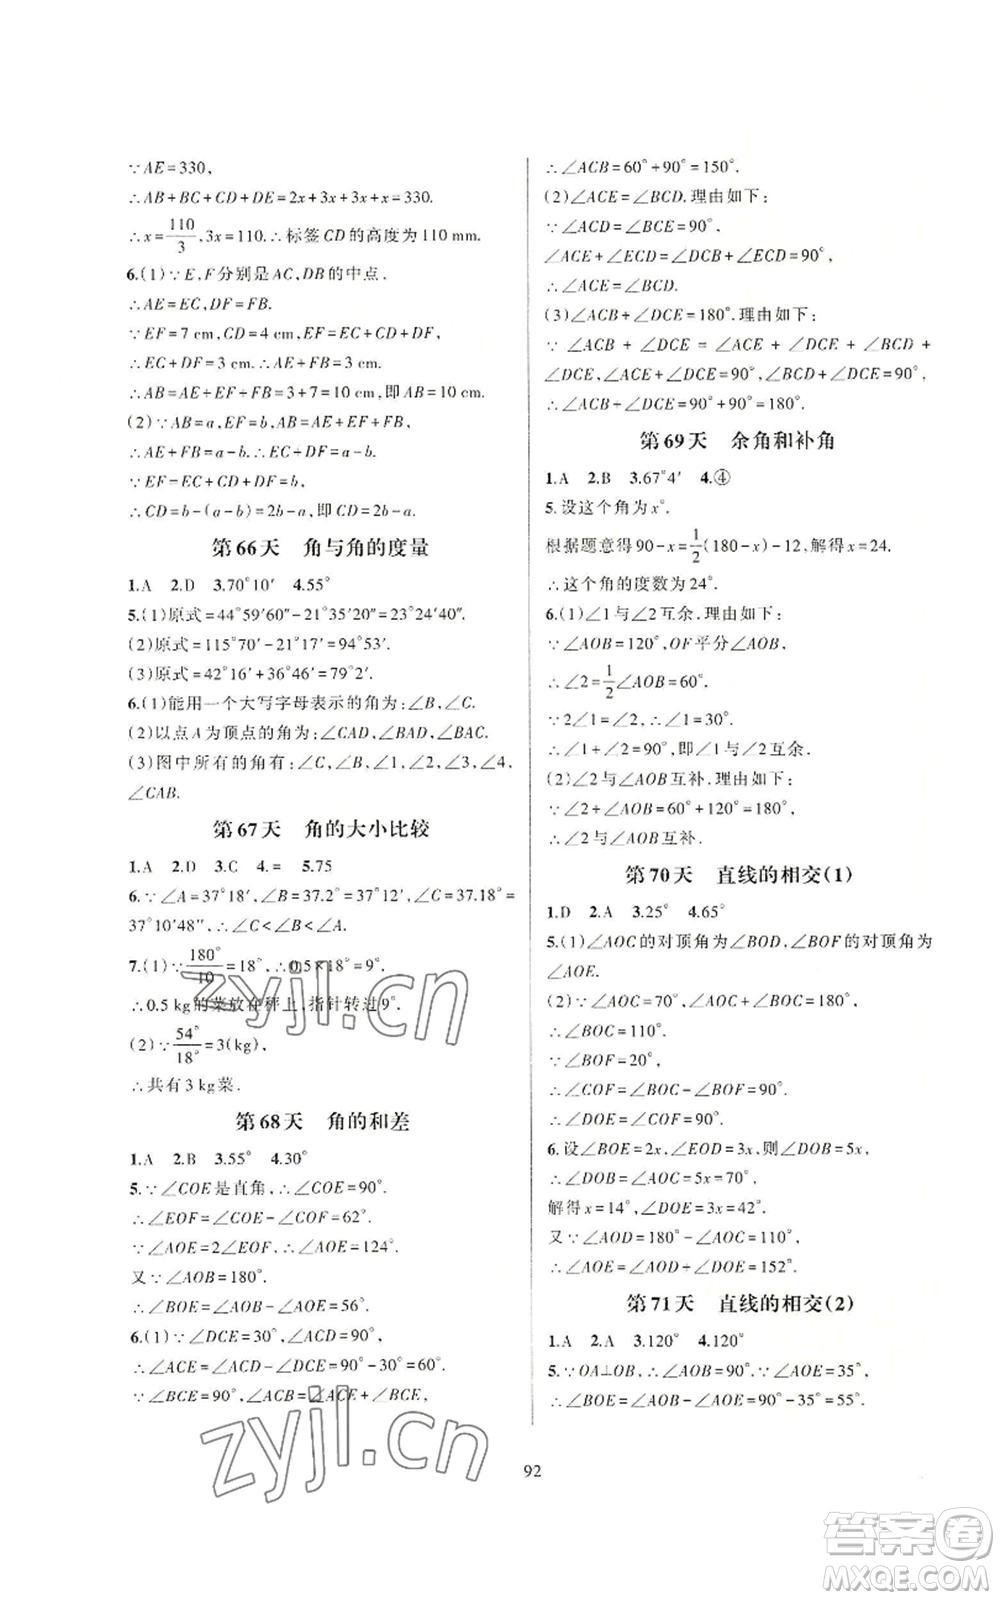 ∵AE=330,
∴AB+BC+CD+DE=2x+3x+3x+x=330.
∴x=110/3,3x=110.∴标签CD的高度为110 mm.
6.(1)∵E,F分别是AC,DB的中点.
∴AE=EC,DF=FB.
∵EF=7 cm,CD=4 cm,EF=EC+CD+DF,
∴EC+DF=3 cm.∴AE+FB=3 cm.
∴AB=AE+EF+FB=3+7=10 cm,即AB=10 cm.
(2)∵AB=a,EF=b,AB=AE+EF+FB,
∴AE+FB=a-b.∴EC+DF=a-b.
∵EF=EC+CD+DF=b,
∴CD=b-(a-b)=2b-a,即CD=2b-a.
第66天 角与角的度量
1.A 2.D 3.70°10′ 4.55°
5.(1)原式=44°59′60″-21°35′20″=23°24′40″.
(2)原式=115°70′-21°17′=94°53′.
(3)原式=42°16′+36°46′=79°2′.
6.(1)能用一个大写字母表示的角为:∠B,∠C.
(2)以点A为顶点的角为:∠CAD,∠BAD,∠BAC.
(3)图中所有的角有:∠C,∠B,∠1,∠2,∠3,∠4,
∠CAB.
第67天 角的大小比较
1.A 2.D 3.C 4.= 5.75
6.∵∠A=37°18′,∠B=37.2°=37°12′,∠C=37.18°=
37°10′48″,∴∠C<∠B<∠A.
7.(1)∵180°/10=18°,∴0.5×18°=9°.
∴0.5 kg的菜放在秤上,指针转过9°.
(2)∵54°/18°=3(kg),
∴共有3 kg菜.
第68天 角的和差
1.A 2.B 3.55° 4.30°
5.∵∠COE是直角,∴∠COE=90°.
∴∠EOF=∠COE-∠COF=62°.
∵∠AOE=2∠EOF,∴∠AOE=124°.
又∵∠AOB=180°.
∴∠BOE=∠AOB-∠AOE=56°.
6.(1)∵∠DCE=30°,∠ACD=90°.
∴∠ACE=∠ACD-∠DCE=90°-30°=60°.
∵∠BCE=90°,∠ACB=∠ACE+∠BCE,
∴∠ACB=60°+90°=150°.
(2)∠ACE=∠BCD.理由如下:
∵∠ACD=∠BCE=90°,
∠ACE+∠ECD=∠DCB+∠ECD=90°,
∴∠ACE=∠BCD.
(3)∠ACB+∠DCE=180°.理由如下:
∵ ∠ACB + ∠DCE = ∠ACE + ∠DCE +
∠DCE,∠ACE+∠DCE=90°,∠BCD+∠DCE=90°,
∴∠ACB+∠DCE=90°+90°=180°.
第69天 余角和补角
1.A 2.B 3.67°4′ 4.④
5.设这个角为x°.
根据题意得90-x=1/2(180-x)-12,解得x=24.
∴这个角的度数为24°.
6.(1)∠1与∠2互余.理由如下:
∵∠AOB=120°,OF平分∠AOB,
∴∠2=1/2∠AOB=60°.
∵2∠1=∠2,∴∠1=30°.
∴∠1+∠2=90°,即∠1与∠2互余.
(2)∠2与∠AOB互补.理由如下:
∵∠2+∠AOB=60°+120°=180°,
∴∠2与∠AOB互补.
第70天 直线的相交(1)
1.D 2.A 3.25° 4.65°
5.(1)∠AOC的对顶角为∠BOD,∠BOF的对顶角为
∠AOE.
(2)∵∠AOC=70°,∠AOC+∠BOC=180°,
∴∠BOC=110°.
∵∠BOF=20°,
∴∠COF=∠BOC-∠BOF=90°.
∴∠DOE=∠COF=90°.
6.设∠BOE=2x,∠EOD=3x,则∠DOB=5x,
∴∠DOB=∠AOC=5x=70°,
解得x=14°,∠DOE=3x=42°.
又∵∠AOD=180°-∠AOC=110°,
∴∠AOE=∠AOD+∠DOE=152°.
第71天 直线的相交(2)
1.A 2.A 3.120° 4.120°
5.∵OA⊥OB,∴∠AOB=90°.∵∠AOE=35°,
∴∠BOE=∠AOB-∠AOE=90°-35°=55°.
92
zyjl.cn
zyjl.cn
答案圈
MXQE.COM